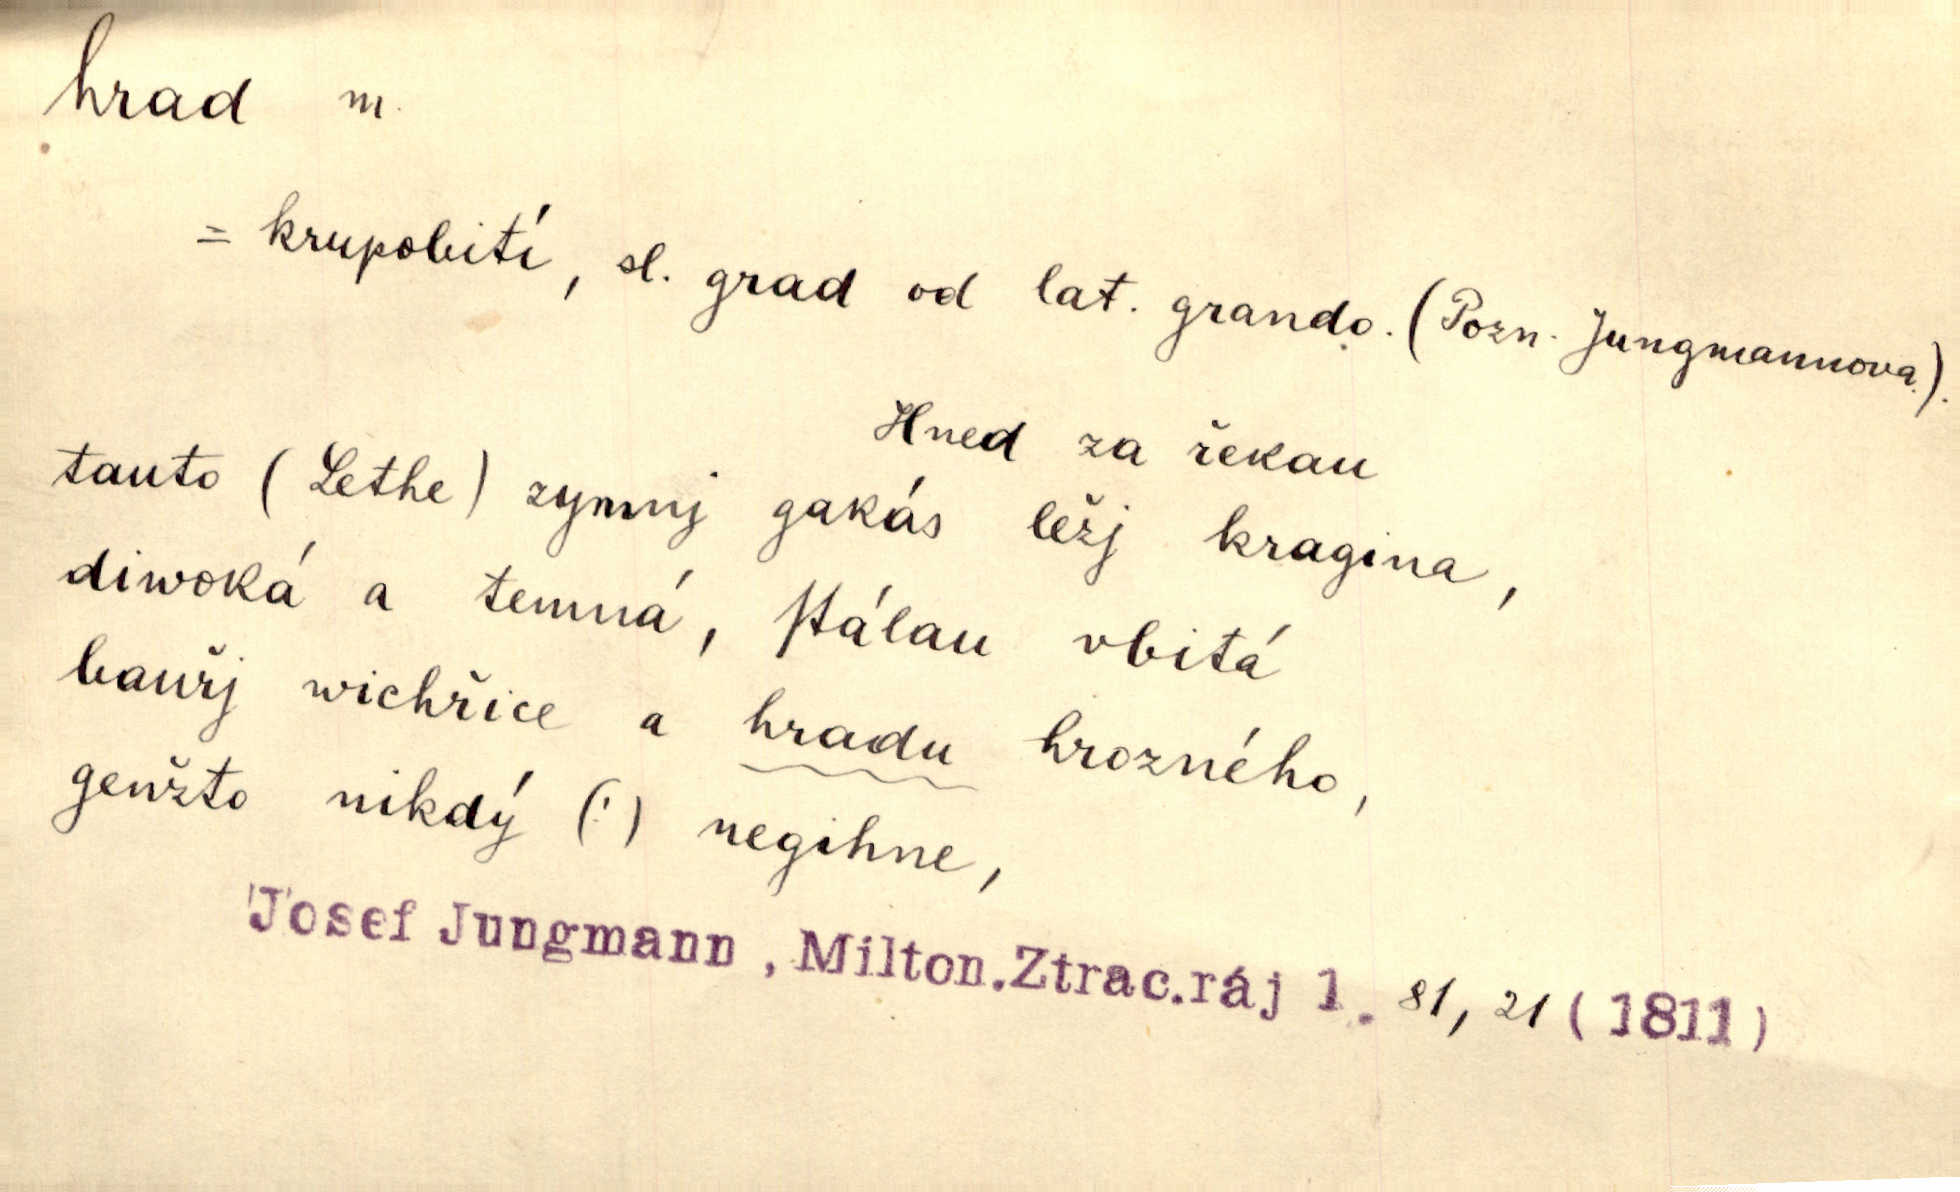 hrad m.
= krupobití, sl. grad od lat. grando. (Pozn. Jungmannova).
Hned za řekau
tauto (Lethe) zymnj gakás ležj kragina,
diwoká a temná, stálau vbitá
bauřj wichřice a hradu hrozného,
genžto nikdý (!) negihne,
Josef Jungmann, Milton.Ztrac.ráj 1. 81, 21 (1811)